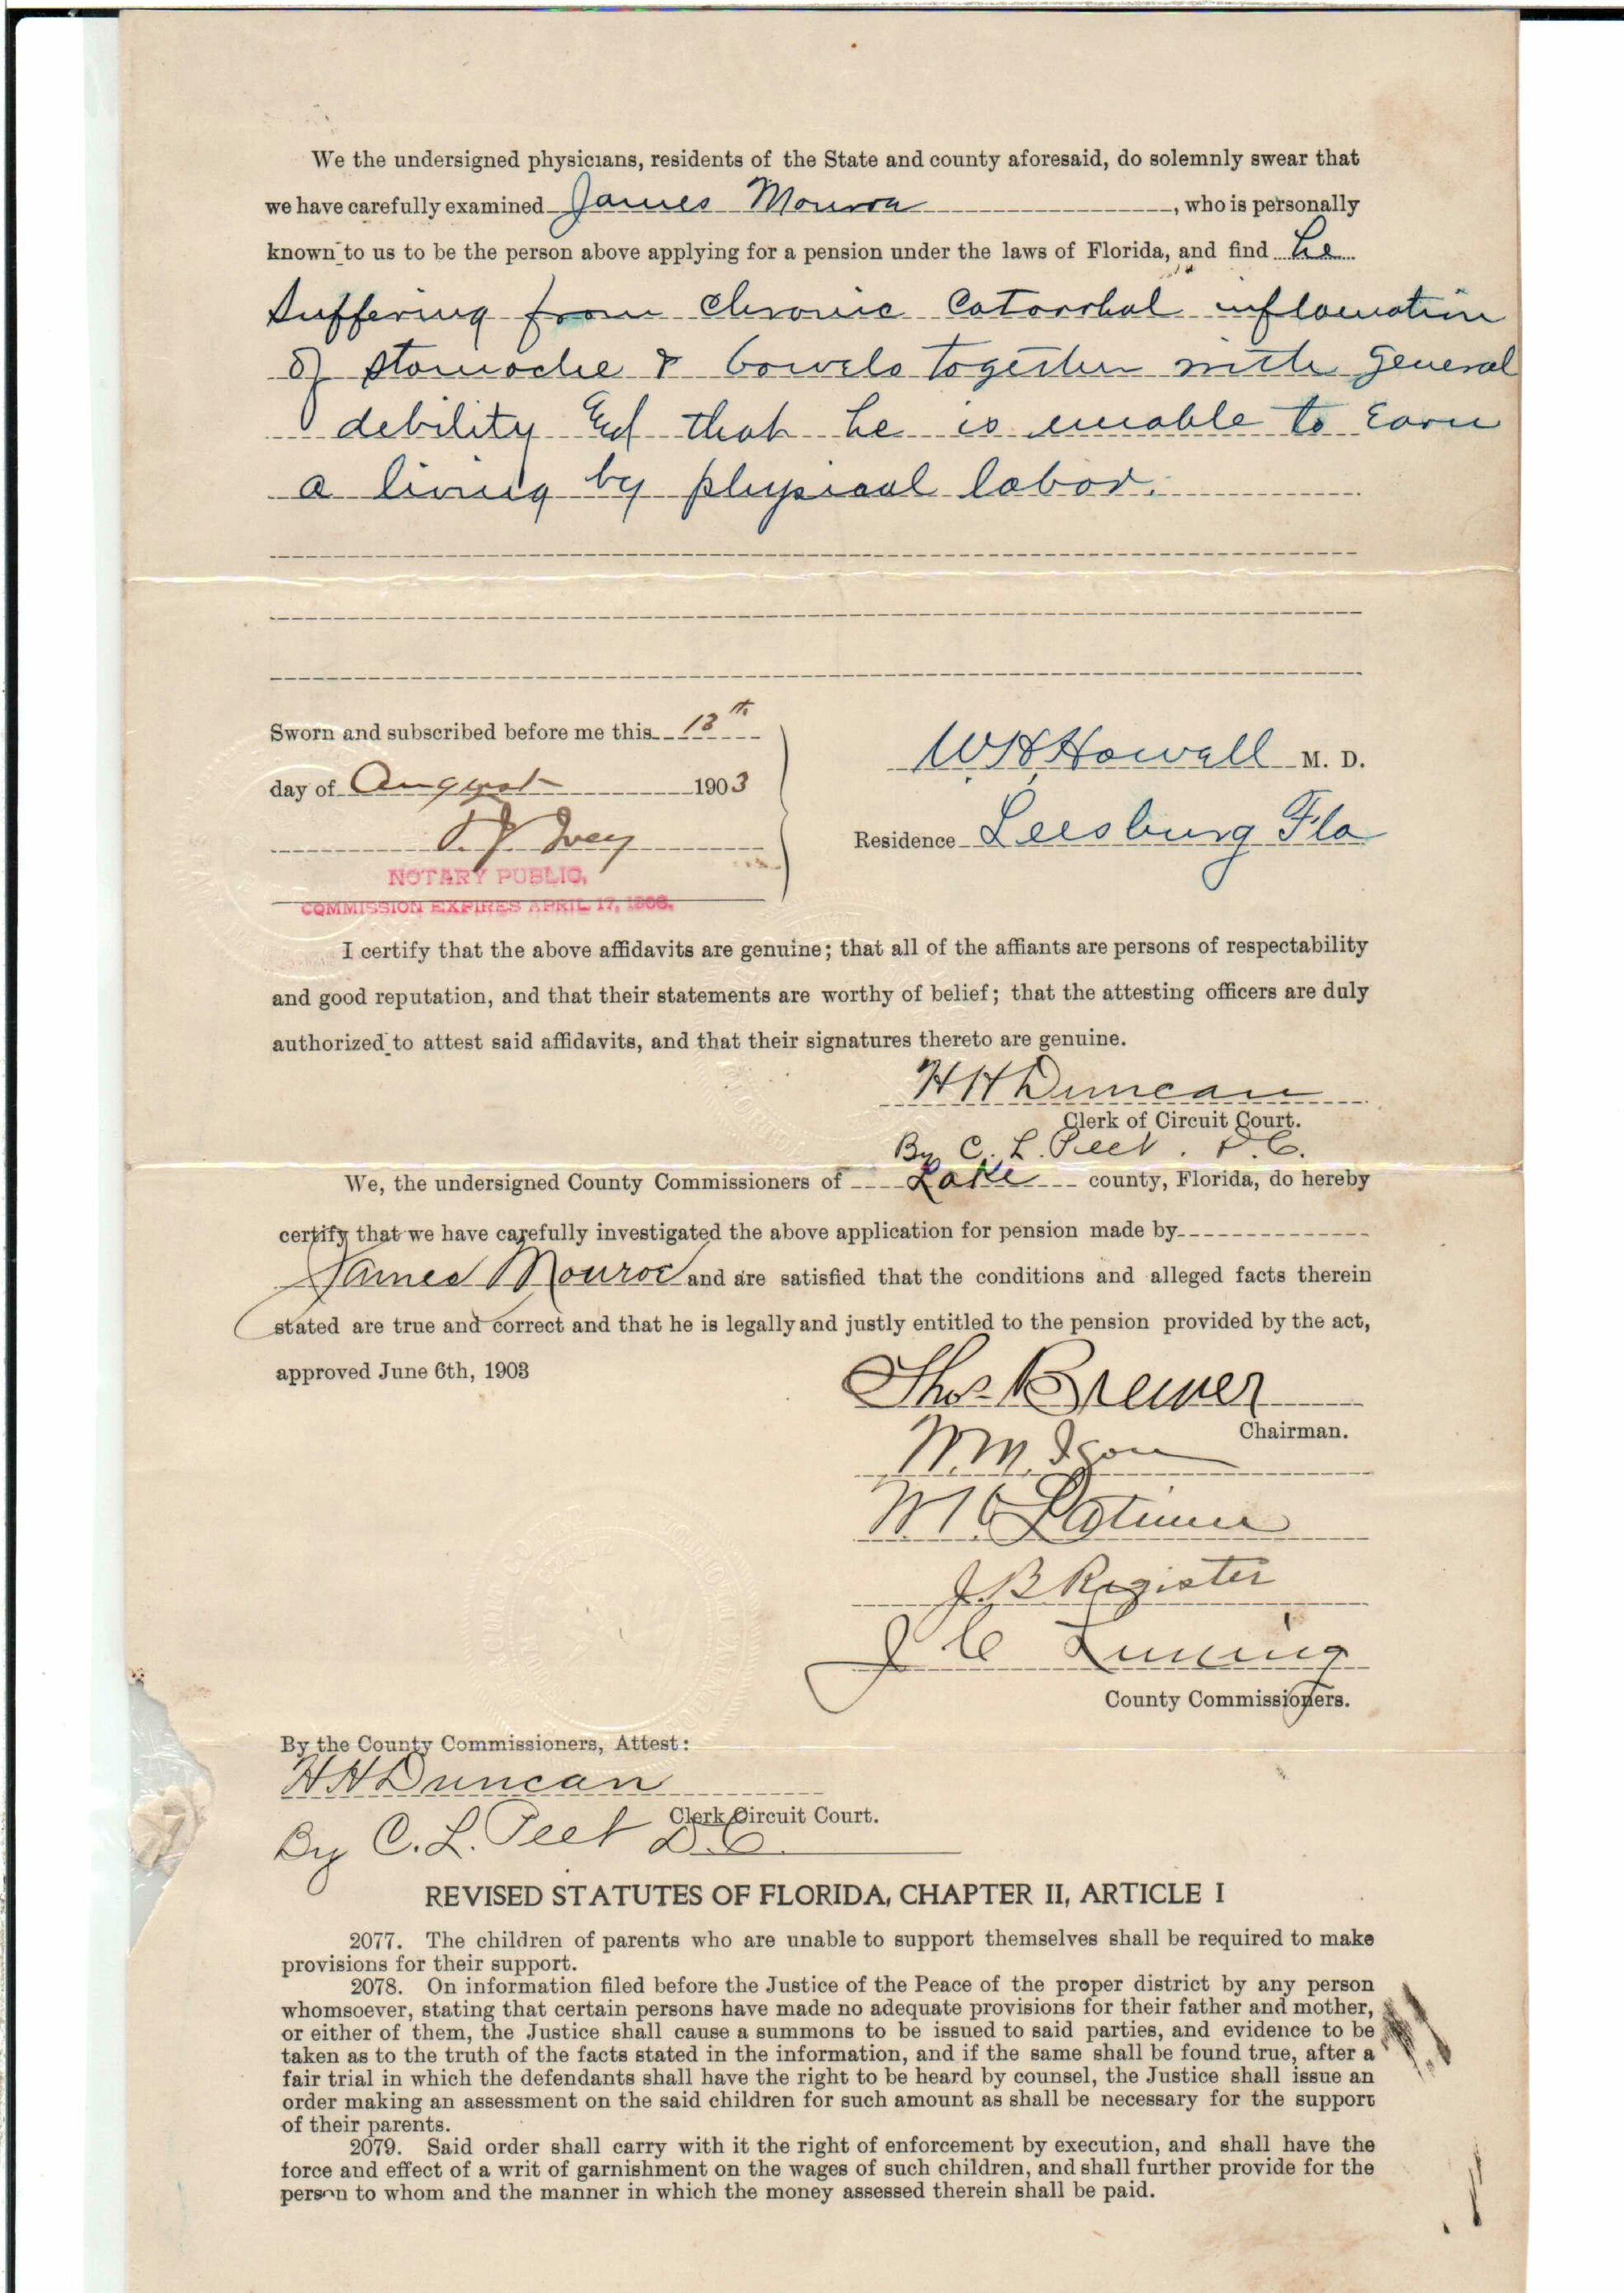 We the undersigned physicians, residents of the State and county aforesaid, do solemnly swear that
we have carefully examined James Monroe, who is personally
known to us to be the person above applying for a pension under the laws of Florida, and find he
suffering from chronic Catarrhal inflamation
of stomache & bowels together with general
debility that he is unable to Earn
a living by physical labor.
Sworn and subscribed before me this 13th
day of August 1903
Ivey
NOTARY PUBLIC,
COMMISSION EXPIRES APRIL 17, 1906.
W H Howell M. D.
Residence Leesburg Fla
I certify that the above affidavits are genuine; that all of the affiants are persons of respectability
and good reputation, and that their statements are worthy of belief; that the attesting officers are duly
authorized to attest said affidavits, and that their signatures thereto are genuine.
H H Duncan
Clerk of Circuit Court.
By C. L. Peet. D. C.
We, the undersigned County Commissioners of Lake county, Florida, do hereby
certify that we have carefully investigated the above application for pension made by
James Monroe and are satisfied that the conditions and alleged facts therein
stated are true and correct and that he is legally and justly entitled to the pension provided by the act,
approved June 6th, 1903
Thos Brewer
Chairman.
W. M. Igou
Latimer
J. B Register
J C Luning
County Commissioners.
By the County Commissioners, Attest:
H H Duncan
Clerk Circuit Court.
By C. L. Peet D. C.
REVISED STATUTES OF FLORIDA, CHAPTER II, ARTICLE I
2077. The children of parents who are unable to support themselves shall be required to make
provisions for their support.
2078. On information filed before the Justice of the Peace of the proper district by any person
whomsoever, stating that certain persons have made no adequate provisions for their father and mother,
or either of them, the Justice shall cause a summons to be issued to said parties, and evidence to be
taken as to the truth of the facts stated in the information, and if the same shall be found true, after a
fair trial in which the defendants shall have the right to be heard by counsel, the Justice shall issue an
order making an assessment on the said children for such amount as shall be necessary for the support
of their parents.
2079. Said order shall carry with it the right of enforcement by execution, and shall have the
force and effect of a writ of garnishment on the wages of such children, and shall further provide for the
person to whom and the manner in which the money assessed therein shall be paid.